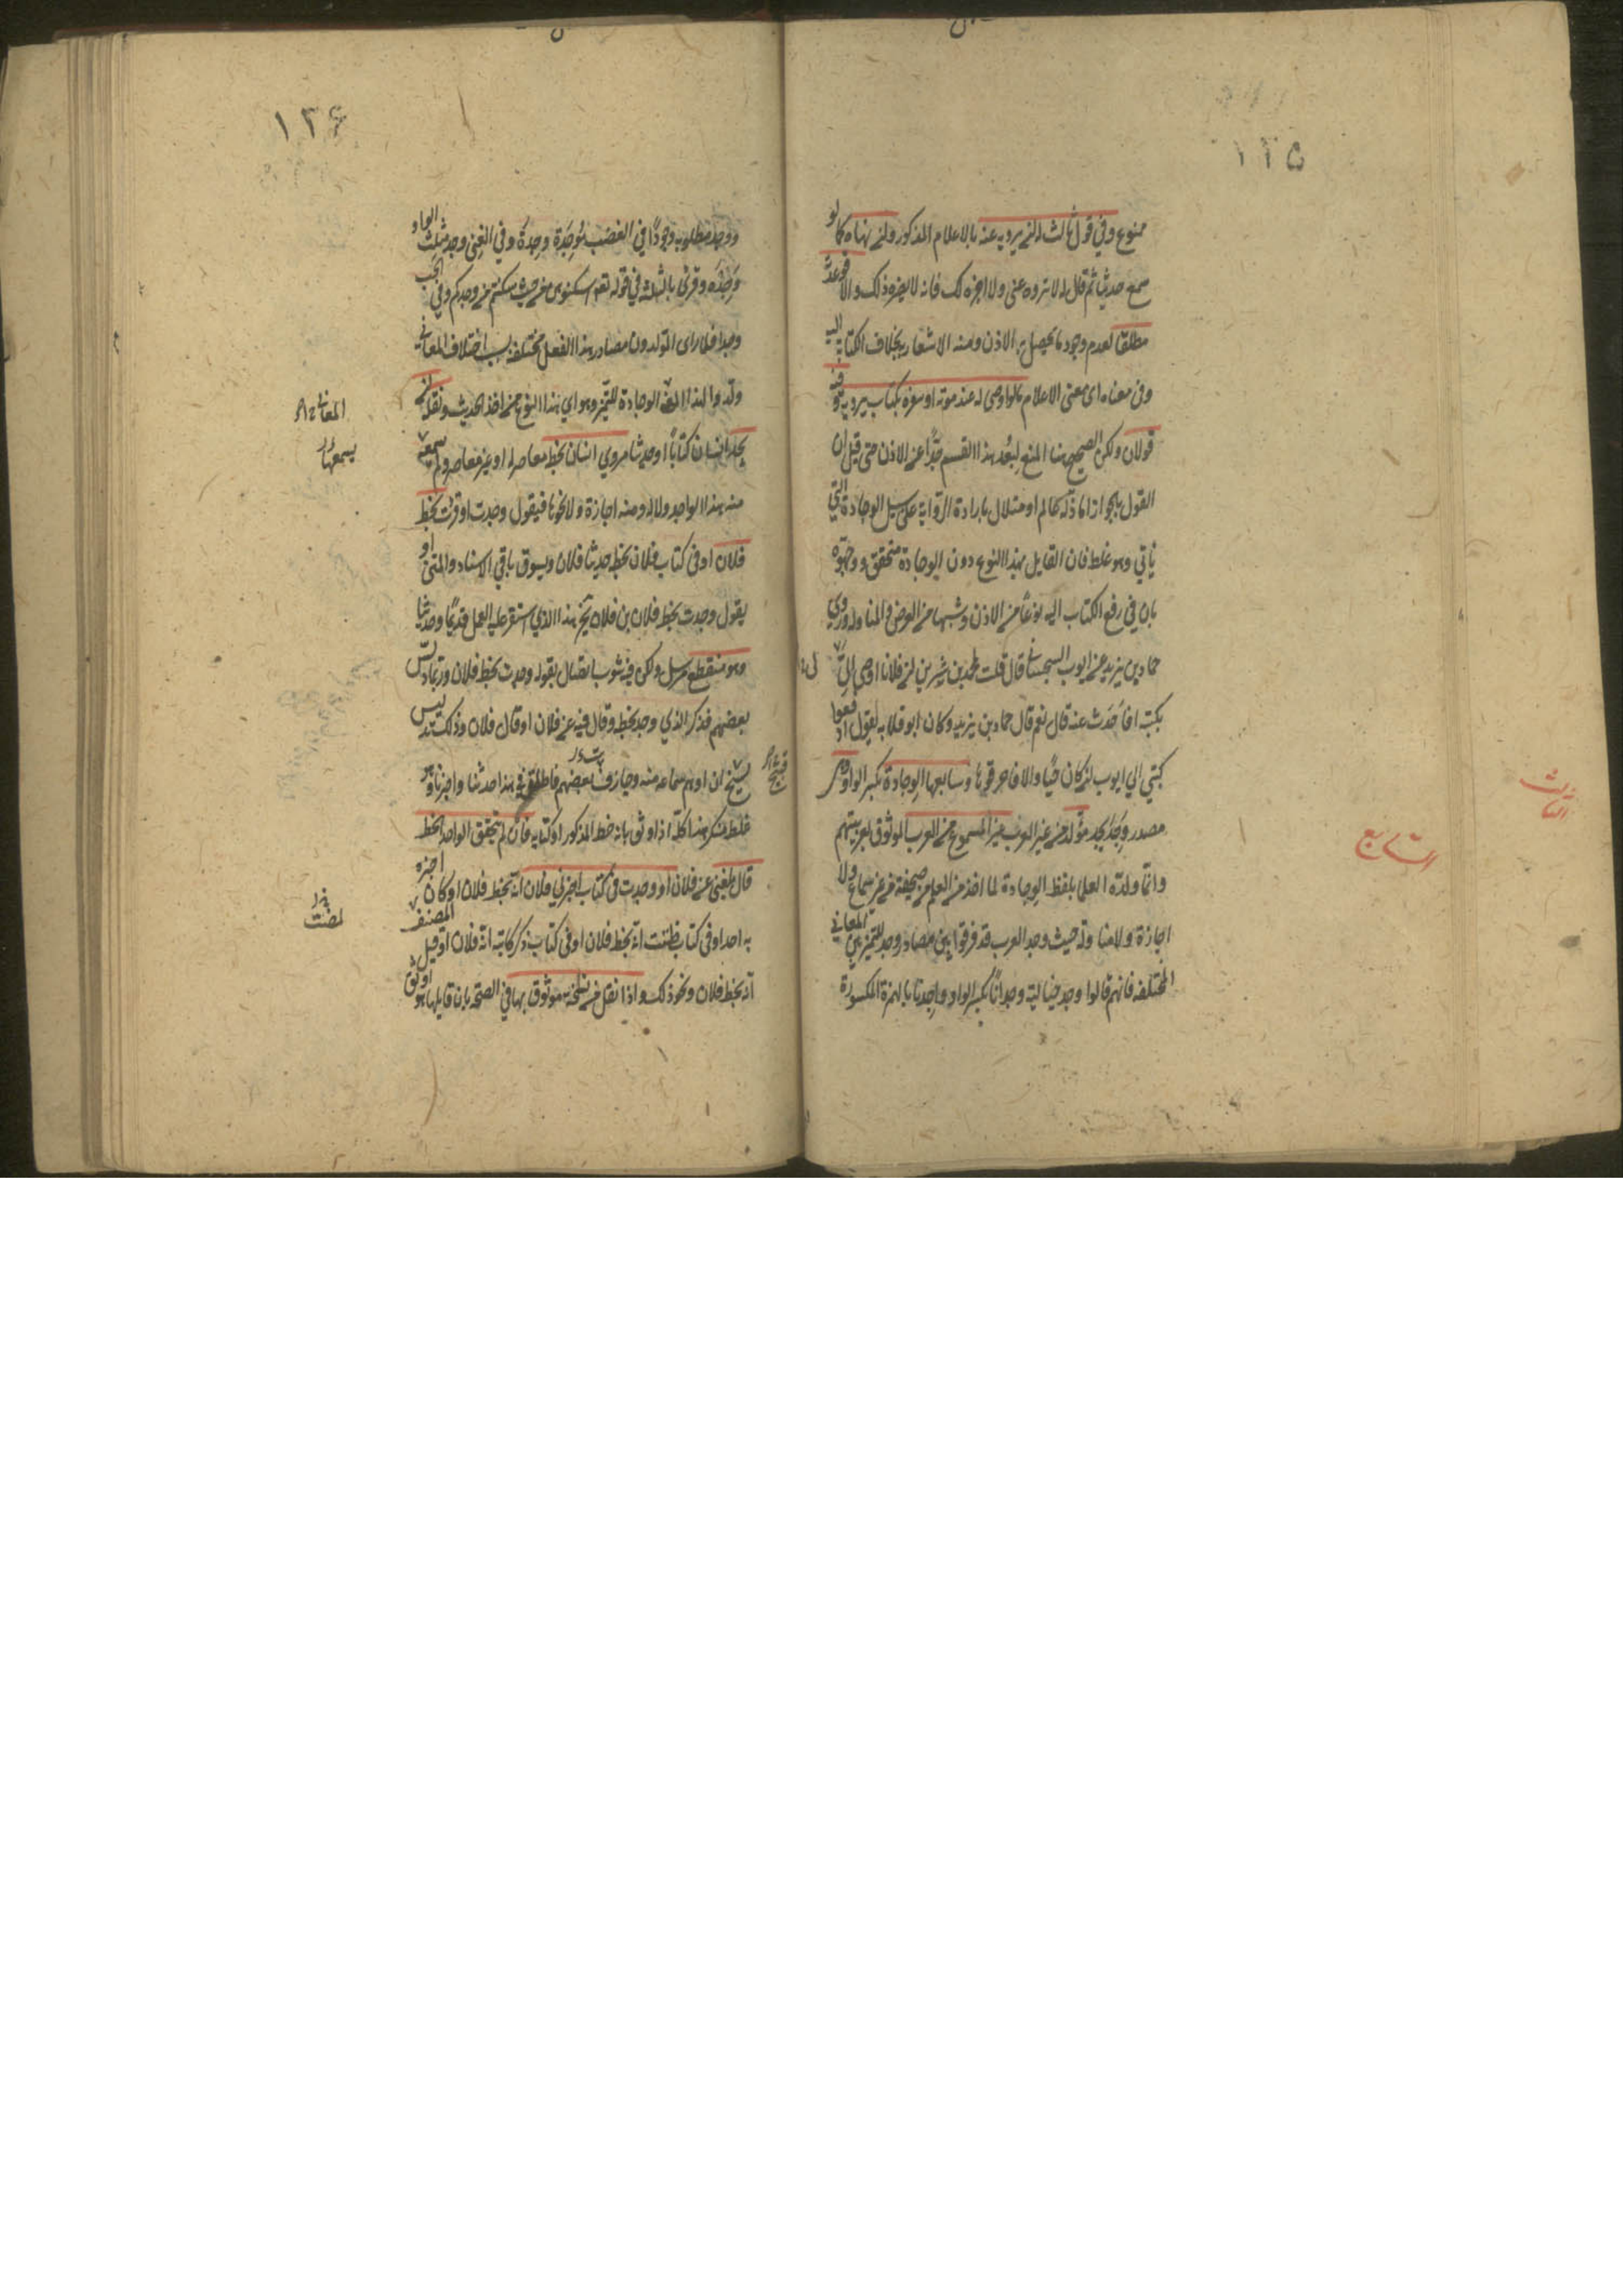 ١٢٥
ممنوع وفي قول ثالث له ان يرويه عنه بالاعلام المذكور وان نهاه كما لو
سمع حديثا ثم قال له لا تروه عني ولا اجيزه لك فانه لا يضره ذلك والاقوى عدمه
مطلقا لعدم وجود ما يحصل به الاذن ومنه الاشعار بخلاف الكتابة اليه
وفي معناه اي معنى الاعلام ما لو اوصى له عند موته او سفره بكتاب يرويه وفيه
قولان ولكن الصحيح هنا المنع لبُعد هذا القسم جدًّا عن الاذن حتى قيل ان
القول بالجواز اما زلة عالم او متاول بارادة الرواية على سبيل الوجادة التي
ياتي وهو غلط فان القايل بهذا النوع دون الوجادة متحقق ووجهوه
بان في رفع الكتاب اليه نوعًا من الاذن وشبها من العرض والمناولة وروى
حماد بن زيد عن ايوب السجستاني قال قلت لمحمد بن سيرين ان فلانا اوصى لي
بكتبه افاحدث عنه قال نعم قال حماد بن زيد وكان ابو قلابة يقول ادفعوا
كتبي الي ايوب ان كان حيًّا والا فاحرقوها وسابعها الوجادة بكسر الواو وهي
مصدر وجد يجد مولّد من غير العرب غير المسموع من العرب الموثوق بعربيتهم
وانما ولّده العلما بلفظ الوجادة لما اخذ من العلم من صحيفة من غير سماع ولا
اجازة ولا مناولة حيث وجد العرب قد فرقوا بين مصادر وجد للتميز بين المعاني
المختلفة فانهم قالوا وجد ضالته وجدانًا بكسر الواو واجدانا بالهمزة المكسورة
الثالث
السابع
١٢۶
ووجد مطلوبه وجودًا وفي الغضب مَوجِدَة وجِدةً وفي الغنى وجد مثلث الواو
وجِدَةً وقرئ بالثلثة في قوله تعالى اسكنوهن من حيث سكنتم من وجدكم وفي الحب
وجدا فلما راى المولدون مصادر هذا الفعل مختلفة بسبب اختلاف المعاني
ولّدوا لهذا المعنى الوجادة للتميز وهو اي هذا النوع من اخذ الحديث ونقله ان
يجد انسان كتابًا او حديثا مروي انسان بخط معاصر له او غير معاصر ولم يسمعه
منه هذا الواجد ولا له منه اجازة ولا نحوها فيقول وجدت او قرئت بخط
فلان او في كتاب فلان بخطه حدثنا فلان ويسوق باقي الاسناد والمتن او
يقول وجدت بخط فلان بن فلان الخ هذا الذي استقر عليه العمل قديمًا وحديثا
وهو منقطع مرسل ولكن فيه شوب اتصال بقوله وجدت بخط فلان وربما دلّس
بعضهم فذكر الذي وجد بخطه وقال فيه عن فلان او قال فلان وذلك تدليس
قبيح ان اوهم سماعه منه وجازف بعضهم فاطلق في هذا حدثنا واخبرنا وهو
غلط منكر هذا كله اذا وثق بانه خط المذكور او كتابه فان لم يتحقق الواجد الخط
قال بلغني عن فلان او وجدت في كتاب اخبرني فلان انه بخط فلان ان كان اخبره
به احد او في كتاب ظننت انه بخط فلان او في كتاب ذكر كاتبه انه فلان او قيل
انه بخط فلان ونحو ذلك واذا نقل من نسخة موثوق بها في الصحة بان قابلها هو او ثقة
المعاني
يسمعها
قبيح
المصنف